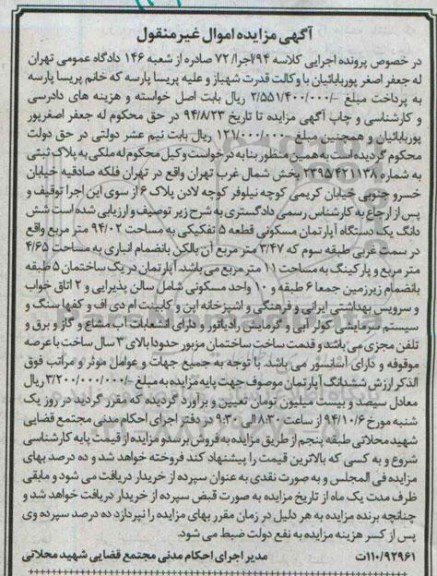 آگهی مزایده اموال غیرمنقول
در خصوص پرونده اجرایی کلاسه ۹۴/اجرا/۷۲ صادره از شعبه ۱۴۶ دادگاه عمومی تهران
له جعفر اصغر پوربابائیان با وکالت قدرت شهباز و علیه پریسا پارسه که خانم پریسا پارسه
به پرداخت مبلغ ۲/۵۵۱/۴۰۰/۰۰۰/- ریال بابت اصل خواسته و هزینه های دادرسی
و کارشناسی و چاپ آگهی مزایده تا تاریخ ۹۴/۸/۲۳ در حق محکوم له جعفر اصغرپور
پوربابائیان و همچنین مبلغ ۱۲۱/۰۰۰/۰۰۰ ریال بابت نیم عشر دولتی در حق دولت
محکوم گردیده است به همین منظور بنا به درخواست وکیل محکوم له ملکی به پلاک ثبتی
به شماره ۲۳۹۵۴۲۱۱۳۸ بخش شمال غرب تهران واقع در تهران فلکه صادقیه خیابان
خسرو جنوبی خیابان کریمی کوچه نیلوفر کوچه لادن پلاک ۶ از سوی این اجرا توقیف و
پس از ارجاع به کارشناس رسمی دادگستری به شرح زیر توصیف و ارزیابی شده است شش
دانگ یک دستگاه آپارتمان مسکونی قطعه ۵ تفکیکی به مساحت ۹۴/۰۲ متر مربع واقع
در سمت غربی طبقه سوم که ۳/۴۷ متر مربع آن بالکن بانضمام انباری به مساحت ۴/۶۵
متر مربع و پارکینگ به مساحت ۱۱ متر مربع می باشد. آپارتمان در یک ساختمان ۵ طبقه
بانضمام زیرزمین جمعا ۶ طبقه و ۱۰ واحد مسکونی شامل سالن پذیرایی و ۲ اتاق خواب
و سرویس بهداشتی ایرانی و فرهنگی و آشپزخانه اپن و کابینت ام دی اف و کفها سنگ و
سیستم سرمایش کولر آبی و گرمایش رادیاتور و دارای انشعابات آب مشاع و گاز و برق و
تلفن مجزی می باشد و قدمت ساخت ساختمان مزبور حدودا بالای ۳ سال ساخت با عرصه
موقوفه و دارای آسانسور می باشد. با توجه به جمیع جهات و عوامل موثر و مراتب فوق
الذکر ارزش ششدانگ آپارتمان موصوف جهت پایه مزایده به مبلغ ۳/۲۰۰/۰۰۰/۰۰۰/- ریال
معادل سیصد و بیست میلیون تومان تعیین و برآورد گردیده که مقرر گردید در روز یک
شنبه مورخ ۹۴/۱۰/۶ از ساعت ۸:۳۰ الی ۹:۳۰ در دفتر اجرای احکام مدنی مجتمع قضایی
شهید محلاتی طبقه پنجم از طریق مزایده به فروش برسد و مزایده از قیمت پایه کارشناسی
شروع و به کسی که بالاترین قیمت را پیشنهاد کند فروخته خواهد شد و ده درصد بهای
مزایده فی المجلس و به صورت نقدی به عنوان سپرده از خریدار دریافت می شود و مابقی
ظرف مدت یک ماه از تاریخ مزایده به صورت قبض سپرده از خریدار دریافت خواهد شد و
چنانچه برنده مزایده به هر دلیل در زمان مقرر بهای مزایده را نپردازد ده درصد سپرده وی
پس از کسر هزینه مزایده به نفع دولت ضبط می شود.
۱۱۰/۹۲۹۶۱ت مدیر اجرای احکام مدنی مجتمع قضایی شهید محلاتی